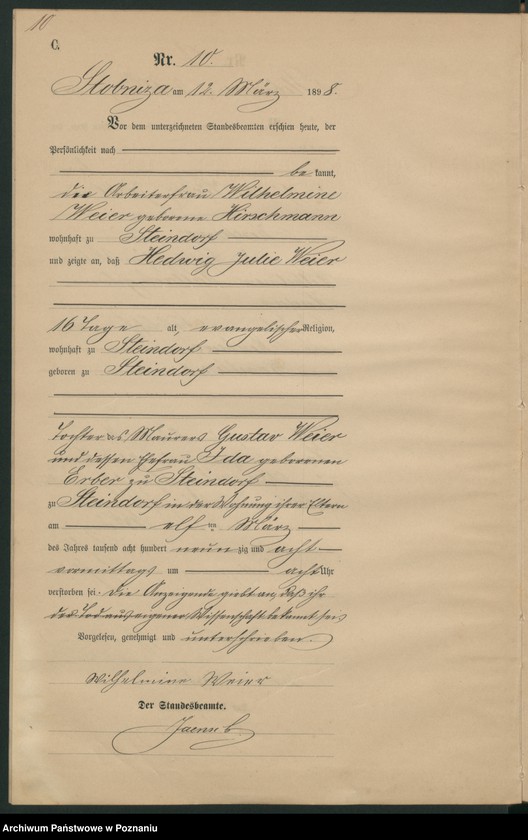 10
C.
Nr. 10.
Stobniza am 12. März 1898.
Vor dem unterzeichneten Standesbeamten erschien heute, der
Persönlichkeit nach
bekannt,
die Arbeiterfrau Wilhelmine
Weier geborene Hirschmann
wohnhaft zu Steindorf
und zeigte an, daß Hedwig Julie Weier
16 Tage alt, evangelischer Religion,
wohnhaft zu Steindorf
geboren zu Steindorf
Tochter des Maurers Gustav Weier
und dessen Ehefrau Ida geborenen
Erber zu Steindorf
zu Steindorf in der Wohnung ihrer Eltern
am elften März
des Jahres tausend acht hundert neunzig und acht
vormittags um acht Uhr
verstorben sei. Die Anzeigende giebt an, daß ihr
der Tod aus eigener Wissenschaft bekannt sei
Vorgelesen, genehmigt und unterschrieben.
Wilhelmine Weier
Der Standesbeamte.
Archiwum Państwowe w Poznaniu